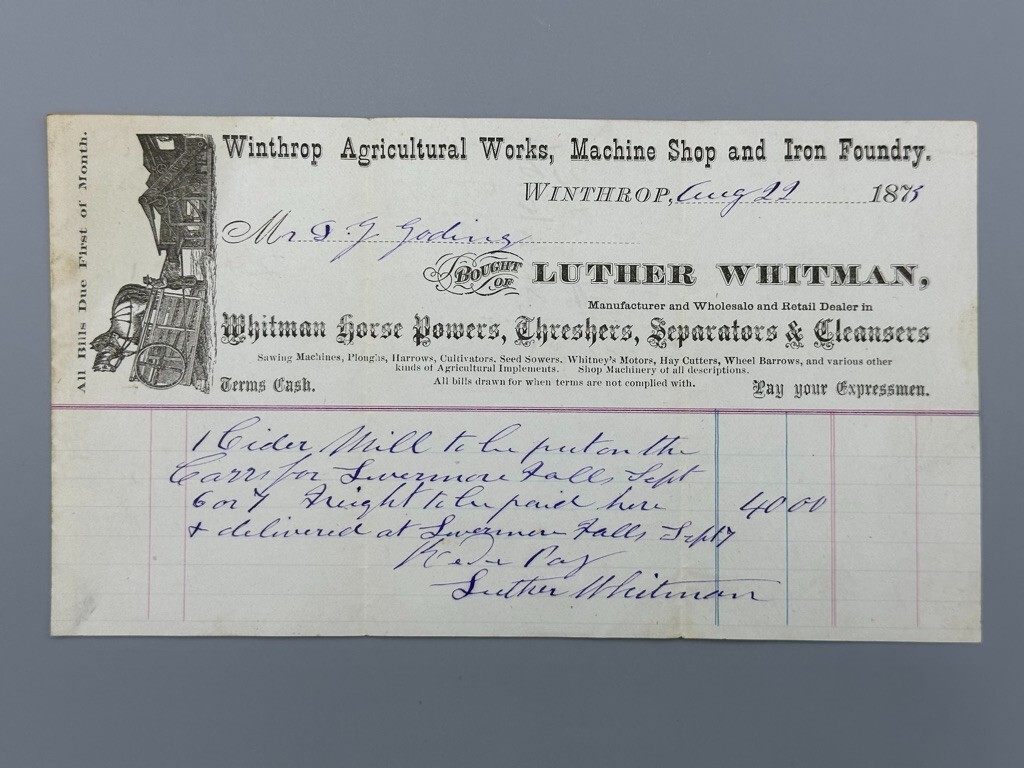 All Bills Due First of Month.
Winthrop Agricultural Works, Machine Shop and Iron Foundry.
WINTHROP, Aug 22 1875
Mr D J Goding
BOUGHT OF LUTHER WHITMAN,
Manufacturer and Wholesale and Retail Dealer in
Whitman Horse Powers, Threshers, Separators & Cleansers
Sawing Machines, Ploughs, Harrows, Cultivators. Seed Sowers. Whitney's Motors, Hay Cutters, Wheel Barrows, and various other
kinds of Agricultural Implements. Shop Machinery of all descriptions.
Terms Cash. All bills drawn for when terms are not complied with. Pay your Expressmen.
1 Cider Mill to be put on the
Carrs for Livermore Falls Sept
6 or 7 Freight to be paid here 40 00
& delivered at Livermore Falls Sept 7
Recd Pay
Luther Whitman